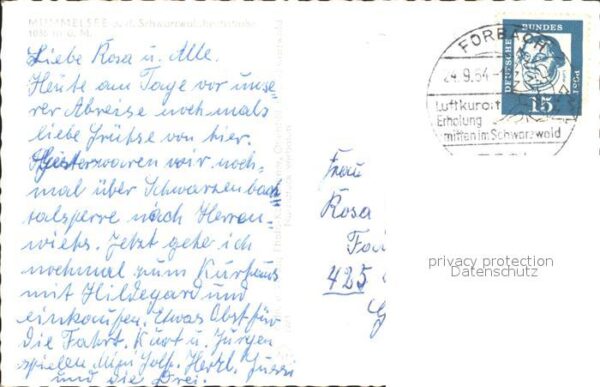 MUMMELSEE a. d. Schwarzwaldhochstraße
1036 m ü. M.
Liebe Rosa u. Alle.
Heute am Tage vor unse-
rer Abreise nochmals
liebe Grüße von hier.
Gestern waren wir noch-
mal über Schwarzenbach
talsperre nach Herren-
wies. Jetzt gehe ich
nochmal zum Kurhaus
mit Hildegard und
einkaufen. Etwas Obst für
die Fahrt. Kurt u. Jürgen
spielen Mini Golf. Herzl. Gussi
und die Drei.
FORBACH
24.9.64
Luftkurort
Erholung
mitten im Schwarzwald
DEUTSCHE BUNDESPOST
15
Frau
Rosa
425
privacy protection
Datenschutz